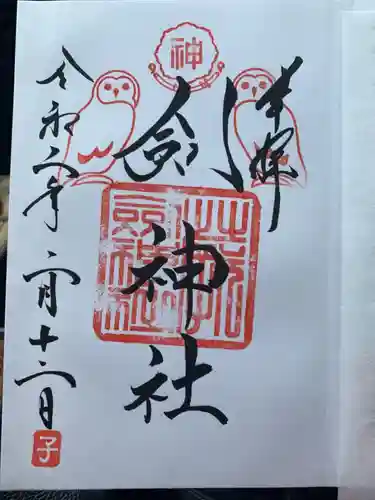 奉拝
神
剣神社
令和二年二月十二日
子